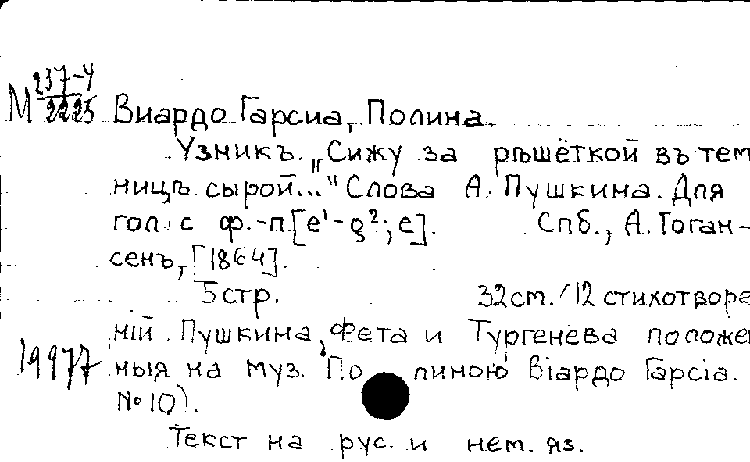 М 237-4/2225
Виардо Гарсиа, Полина.
Узникъ. „Сижу за рѣшёткой въ тем
ницѣ сырой..." Слова А. Пушкина. Для
гол. с ф.-п. [e¹-g²; e]. Спб., А. Иоган-
сенъ, [1864].
5 стр. 32 cm. (12 стихотворе
ній Пушкина, Фета и Тургенева положен
ныя на муз. Полиною Віардо Гарсіа.
№ 10).
19977
Текст на рус. и нем. яз.